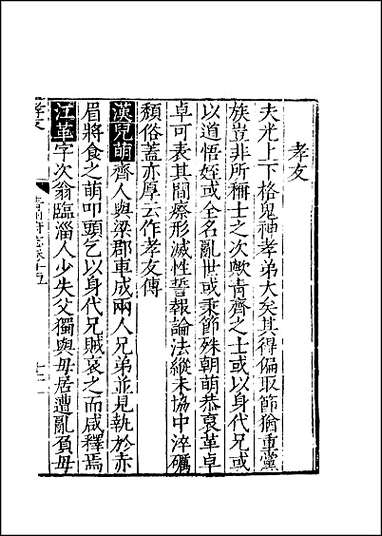 孝友
夫光上下格鬼神孝弟大矣其得偏取節猶重黨
族豈非所稱士之次歟青齊之士或以身代兄或
以道悟姪或全名亂世或秉節殊朝萌恭哀革卓
卓可表其間瘵形滅性誓報論法縱未協中淬礪
頽俗蓋亦厚云作孝友傳
漢兒萌齊人與梁郡車成兩人兄弟並見執於赤
眉將食之萌叩頭乞以身代兄賊哀之而咸釋焉
江革字次翁臨淄人少失父獨與母居遭亂負母